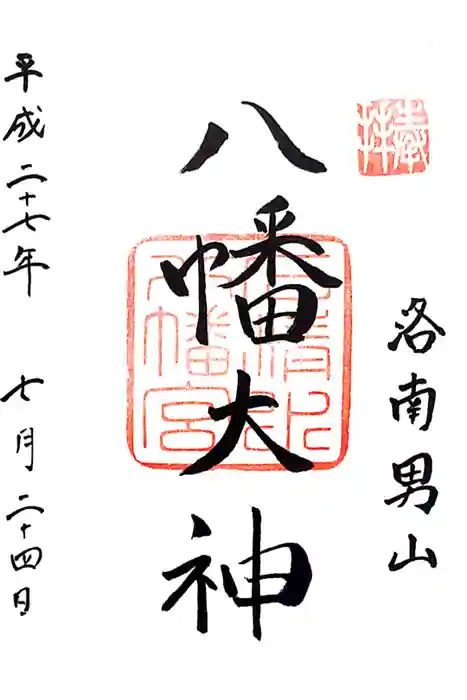 奉拝
洛南男山
八幡大神
石清水
八幡宮
平成二十七年 七月二十四日